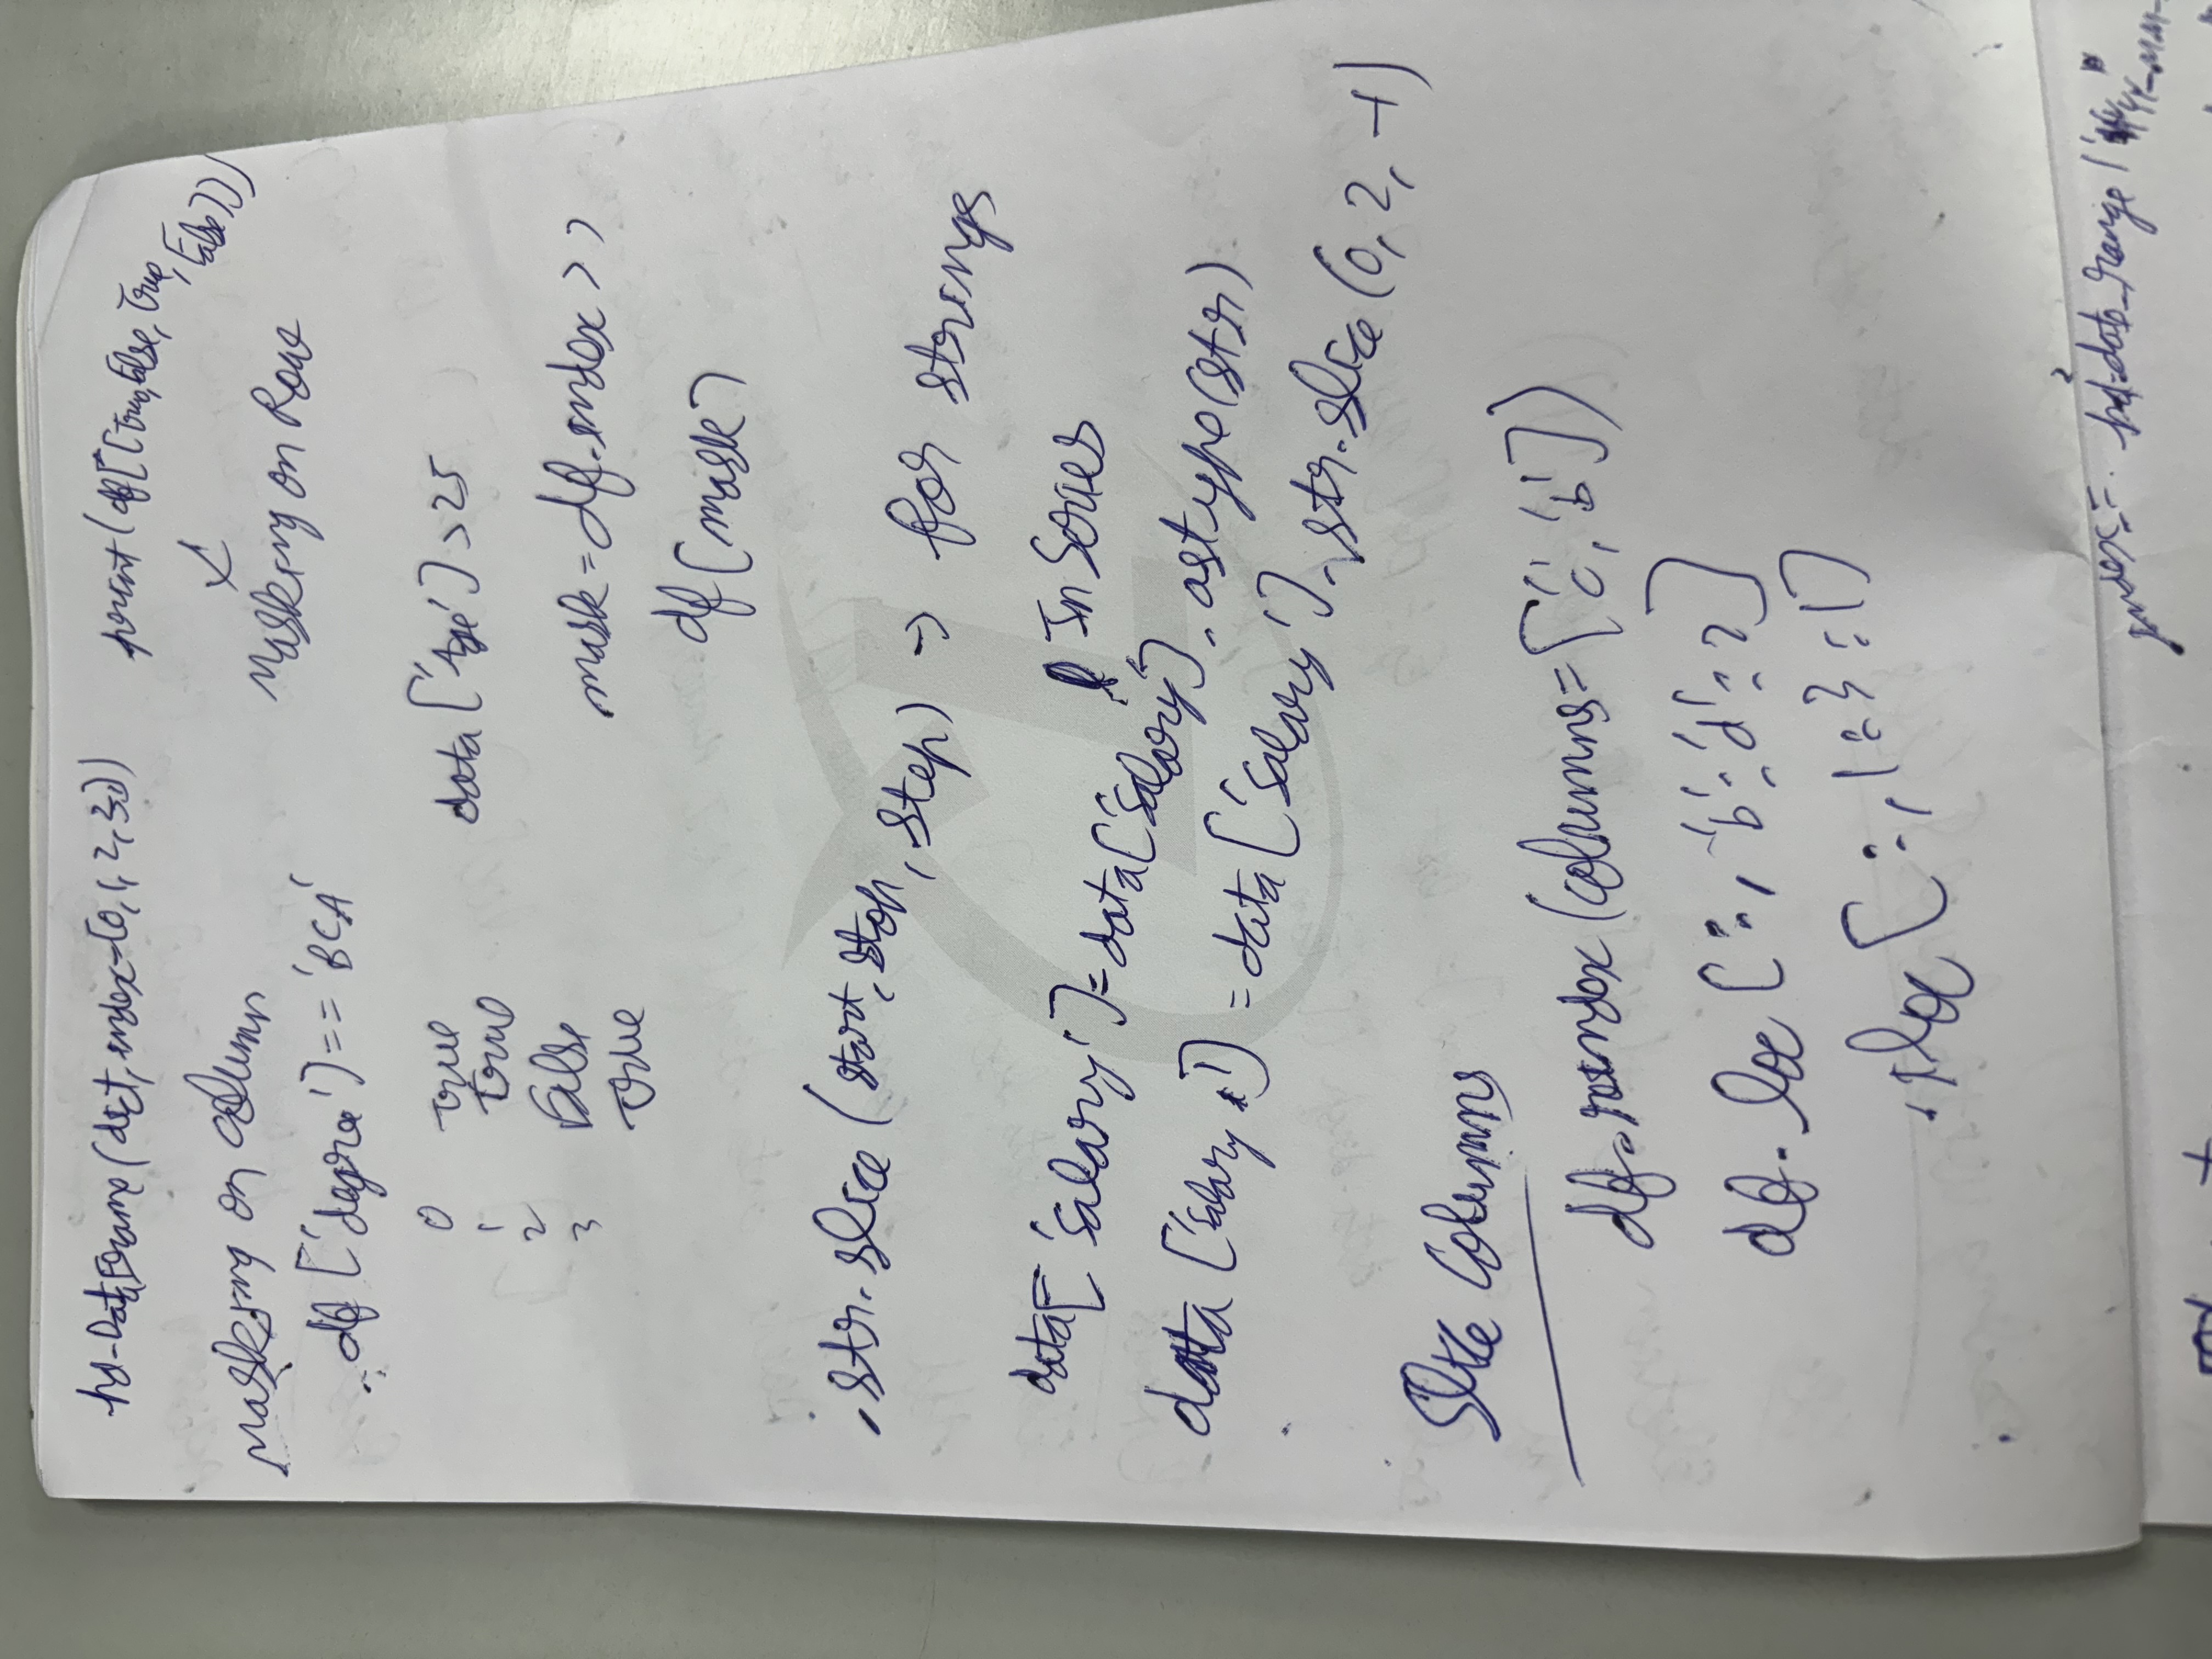 pd.DataFrame(dict, index=[0,1,2,3])
print(df[[True,False,True,False]])
Masking on Row
Masking on column
df['degree']=='BCA'
0 True
1 True
2 False
3 True
data['Age']>25
mask=df.index>7
df[mask]
.str.slice(start,stop,step) → for strings
In Series
data['Salary']=data['Salary'].astype(str)
data['Salary1']=data['Salary'].str.slice(0,2,-1)
Slice Columns
df.reindex(columns=['c','b'])
df.loc[:,'b':'d':2]
.iloc[:,1:3:1]
2
index=pd.date_range('YYYY-MM-